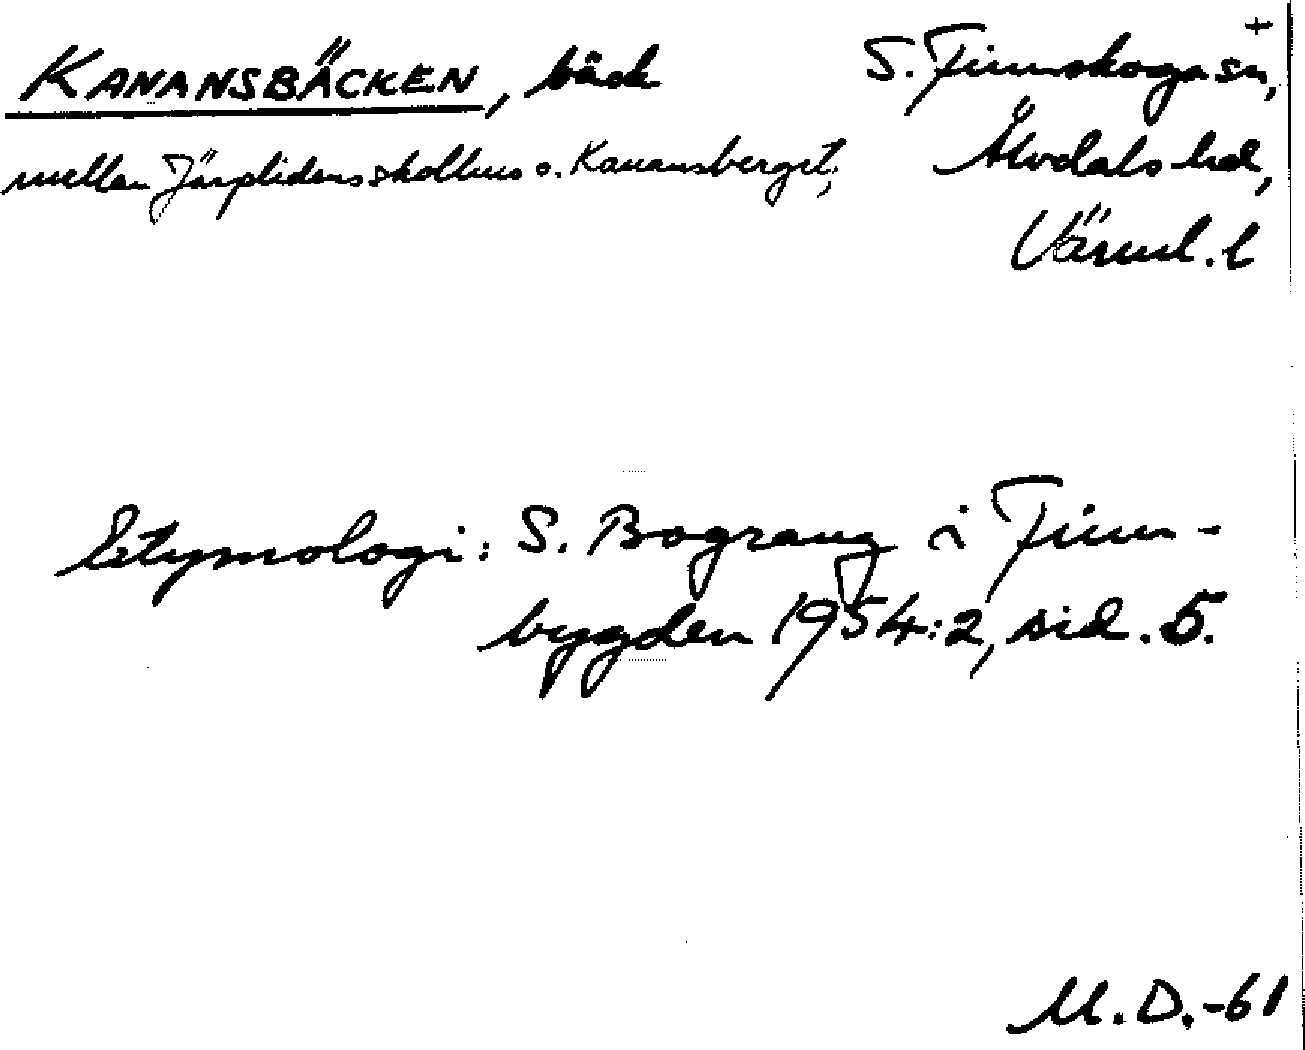 KANANSBÄCKEN, bäck S. Finnskoga sn, +
mellan Järplidens skolhus o. Kanansberget, Älvdals hd,
Värml. l
Etymologi: S. Bograng i Finn-
bygden 1954:2, sid. 5.
M.D.-61